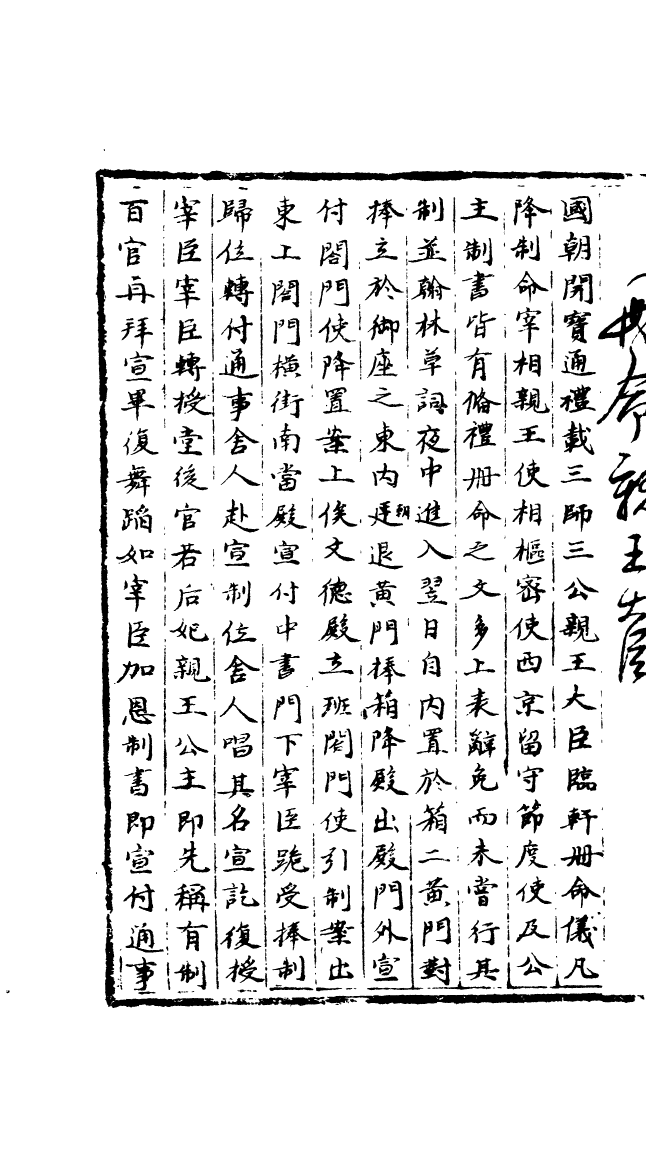 冊命親王大臣
國朝開寶通禮載三師三公親王大臣臨軒冊命儀凡
降制命宰相親王使相樞密使西京留守節度使及公
主制書皆有俻禮冊命之文多上表辭免而未嘗行其
制並翰林草詞夜中進入翌日自内置於箱二黃門對
捧立於御座之東内廷朝退黃門捧箱降殿出殿門外宣
付閤門使降置案上俟文德殿立班閤門使引制案出
東上閤門橫街南當殿宣付中書門下宰臣跪受捧制
歸位轉付通事舍人赴宣制位舍人唱其名宣訖復授
宰臣宰臣轉授堂後官若后妃親王公主即先稱有制
百官再拜宣畢復舞蹈如宰臣加恩制書即宣付通事